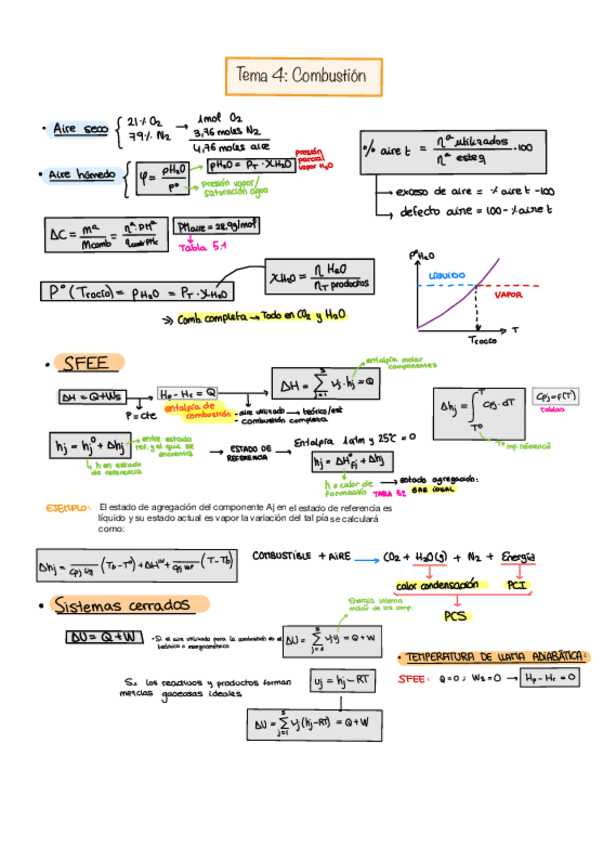 Tema 4: Combustión
• Aire seco { 21% O2 79% N2 → 1mol O2 3,76 moles N2 4,76 moles aire
% aire t = nª utilizados / nª esteq · 100
→ exceso de aire = % aire t - 100
→ defecto aire = 100 - % aire t
• Aire húmedo { φ = pH2O / Pº
pH2O = PT · XH2O
presión parcial vapor H2O
presión vapor/ saturación agua
ΔC = mª / mcomb = nª · PMª / ncomb PMc
PMaire = 28,9 g/mol
Tabla 5.1
Pº (Trocío) = pH2O = PT · XH2O
XH2O = n H2O / nT productos
>> Comb. completa → Todo en CO2 y H2O
PºH2O
LÍQUIDO
VAPOR
Trocío
T
• SFEE
ΔH = Q + Ws
P = cte
Hp - Hr = Q
entalpía de combustión
- aire utilizado → teórico/est
- combustión completa
ΔH = Σ j=1 s νj · hj = Q
entalpía molar componentes
Δhj = ∫ Tº T Cpj · dT
Cpj = f(T)
Tablas
Tº mp. referencia
hj = hjº + Δhj
entre estado ref. y el que se encuentra
h en estado de referencia
→ ESTADO DE REFERENCIA →
Entalpía 1atm y 25ºC = 0
hj = ΔHºfj + Δhj
h o calor de formación TABLA 5.2
→ estado agregación: GAS IDEAL
EJEMPLO: El estado de agregación del componente Aj en el estado de referencia es
líquido y su estado actual es vapor la variación del tal pía se calculará
como:
Δhj = Cpj liq (Tb - Tº) + ΔHLV + Cpj vap (T - Tb)
COMBUSTIBLE + AIRE → CO2 + H2O(g) + N2 + Energía
calor condensación
PCI
PCS
• Sistemas cerrados
ΔU = Q + W
- Si es aire utilizado para la combustión es el teórico o estequiométrico
ΔU = Σ j=1 s νj uj = Q + W
Energía interna molar de los comp.
• TEMPERATURA DE LLAMA ADIABÁTICA:
SFEE: Q = 0 ; Ws = 0 → Hp - Hr = 0
Si los reactivos y productos forman
mezclas gaseosas ideales
uj = hj - RT
ΔU = Σ j=1 s νj (hj - RT) = Q + W